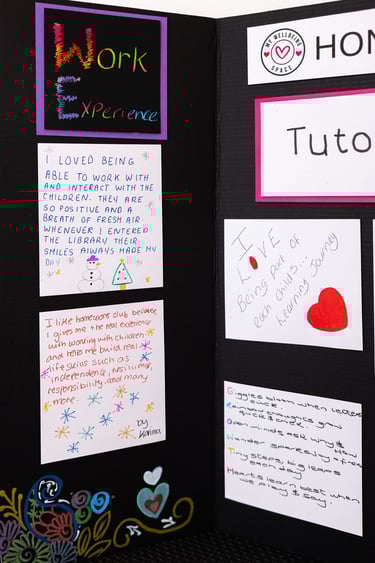 Work
Experience
I LOVED BEING
ABLE TO WORK WITH
AND INTERACT WITH THE
CHILDREN. THEY ARE
SO POSITIVE AND A
BREATH OF FRESH AIR.
WHENEVER I ENTERED
THE LIBRARY THEIR
SMILES ALWAYS MADE MY
DAY
I like homework club because
I gives me the real experience
with working with children
and helps me build real
life skills such as
independence, resilience,
responsibility, and many
more.
by
MY WELLBEING
SPACE
HOM
Tuto
I
LOVE
Being part of
each child's...
Learning Journey
Giggles bloom when
Rainbow thoughts grow
Open minds ask why & How
Wonder
Tiny steps, big leaps
each day
Hearts learn best when
we play &